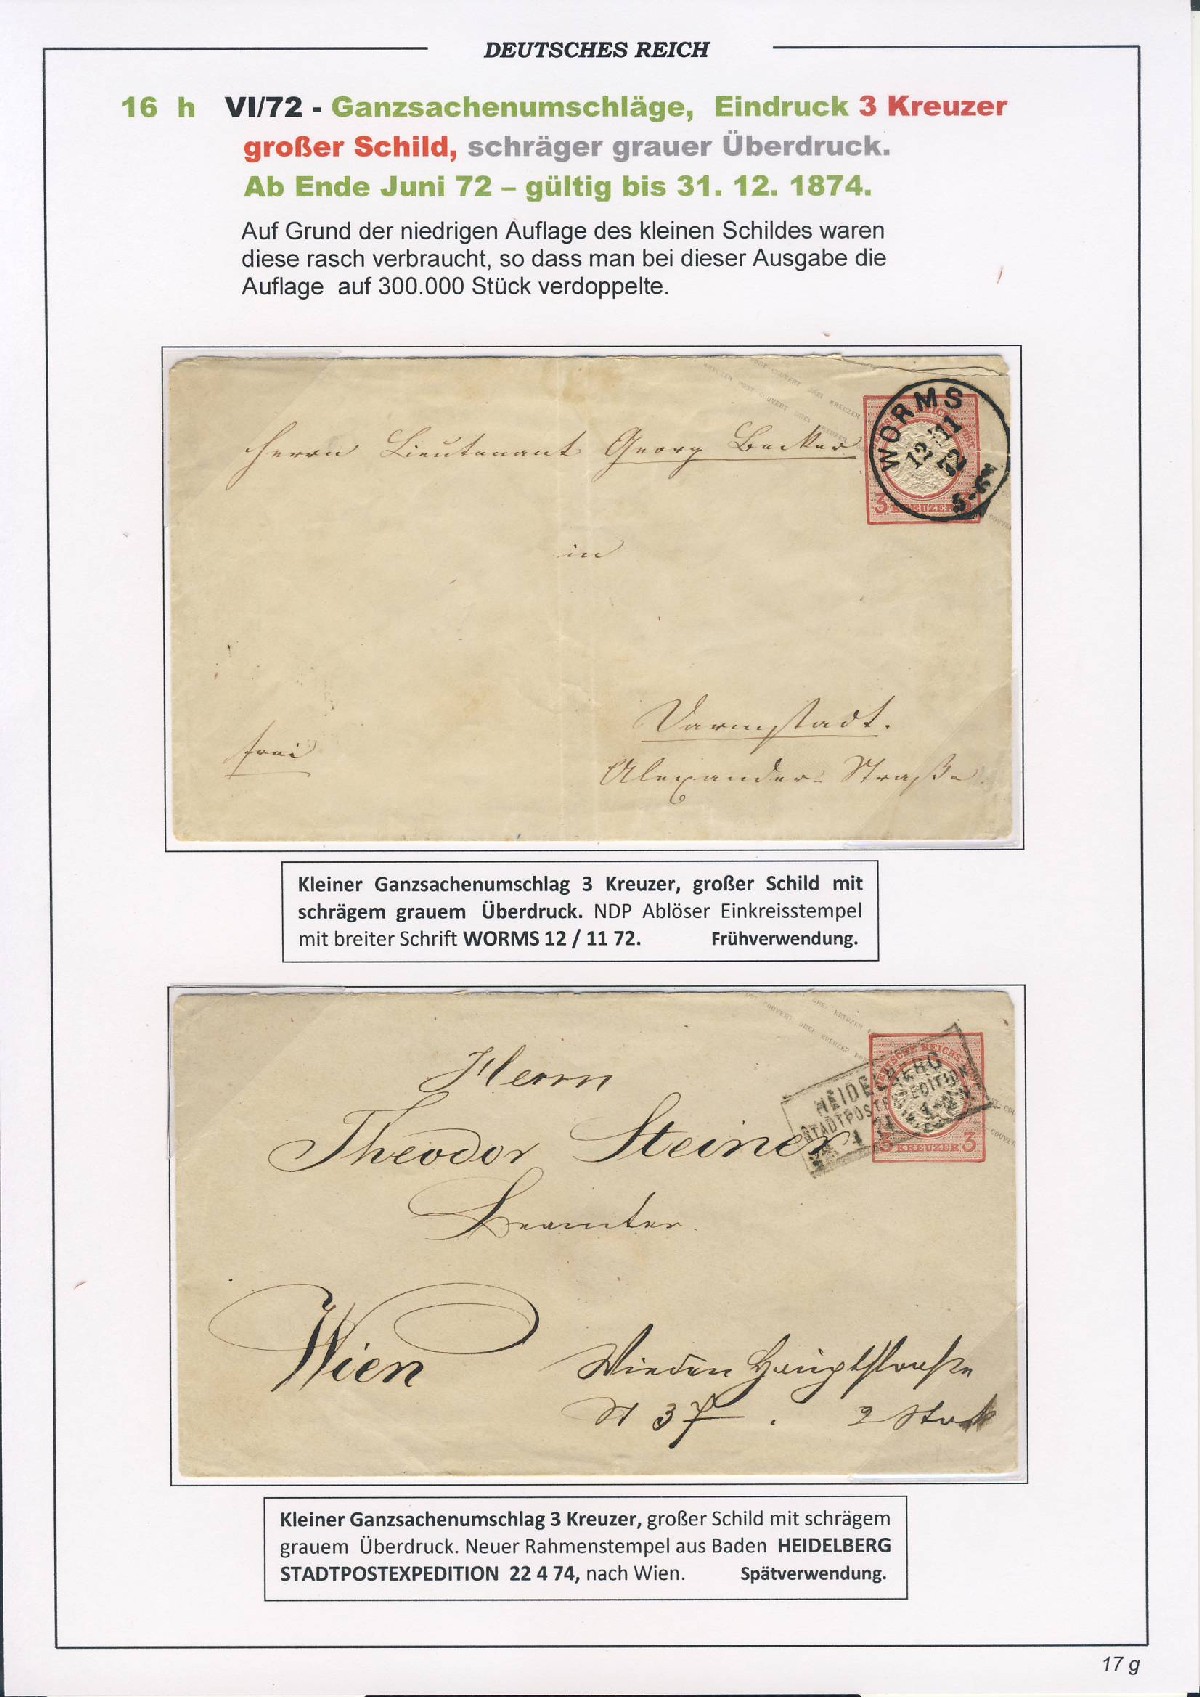 DEUTSCHES REICH
16 h VI/72 - Ganzsachenumschläge, Eindruck 3 Kreuzer
großer Schild, schräger grauer Überdruck.
Ab Ende Juni 72 – gültig bis 31. 12. 1874.
Auf Grund der niedrigen Auflage des kleinen Schildes waren
diese rasch verbraucht, so dass man bei dieser Ausgabe die
Auflage auf 300.000 Stück verdoppelte.
WORMS
12 11
72
3 KREUZER
Herrn Lieutenant Georg Becker
in
Darmstadt.
frei
Alexander-Straße
Kleiner Ganzsachenumschlag 3 Kreuzer, großer Schild mit
schrägem grauem Überdruck. NDP Ablöser Einkreisstempel
mit breiter Schrift WORMS 12 / 11 72. Frühverwendung.
HEIDELBERG
STADTPOSTEXPEDITION
3 KREUZER 3
Herrn
Theodor Steiner
Beamter
Wien
Wieden Hauptstraße
N 37. 2 Stock
Kleiner Ganzsachenumschlag 3 Kreuzer, großer Schild mit schrägem
grauem Überdruck. Neuer Rahmenstempel aus Baden HEIDELBERG
STADTPOSTEXPEDITION 22 4 74, nach Wien. Spätverwendung.
17 g